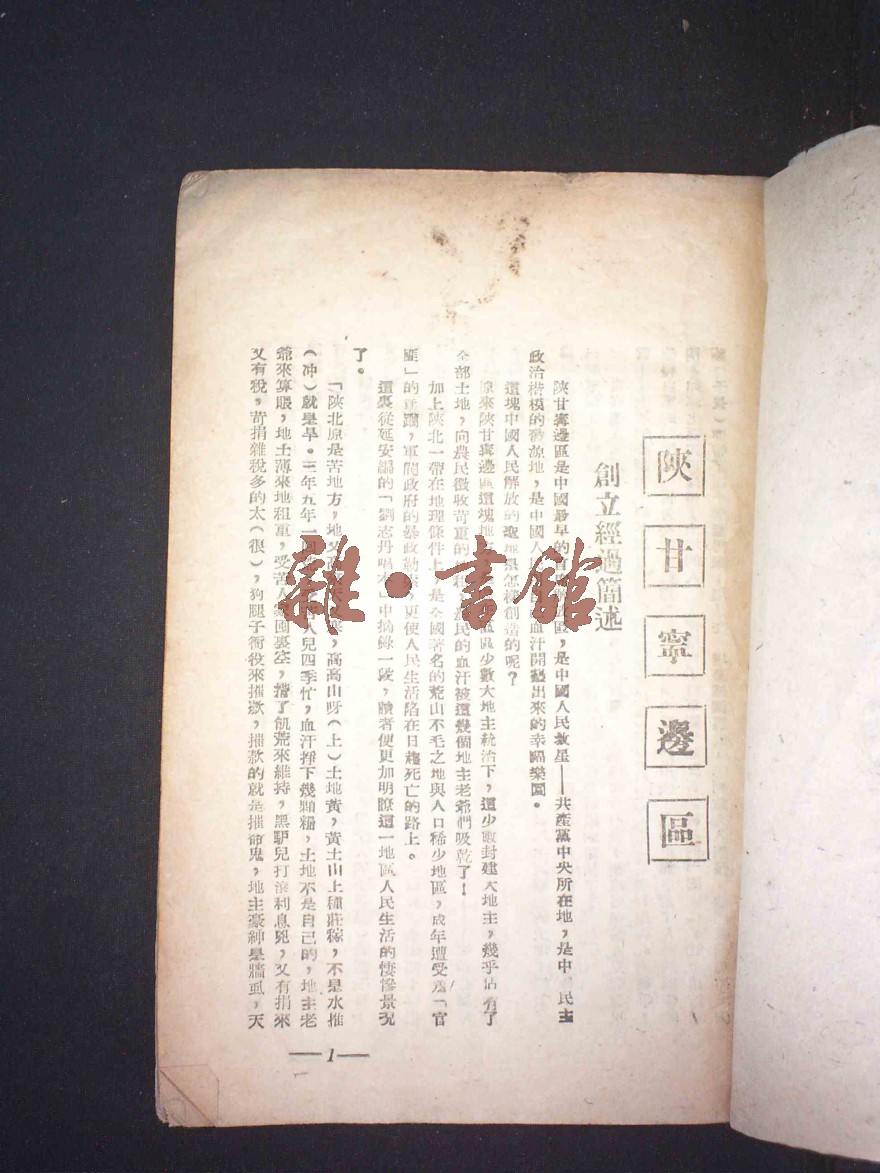 陝甘寧邊區
創立經過簡述
陝甘寧邊區是中國最早的，是中國人民救星——共產黨中央所在地，是中 民主
政治楷模的發源地，是中國人血汗開闢出來的幸福樂園。
這塊中國人民解放的聖地是怎樣創造的呢？
原來陝甘寧邊區這塊地區少數大地主統治下，這少數封建大地主，幾乎佔有了
全部土地，向農民徵收苛重的農民的血汗被這幾個地主老爺們吸乾了！
加上陝北一帶在地理條件上是全國著名的荒山不毛之地與人口稀少地區，成年遭受着「官
匪」的蹂躪，軍閥政府的暴政勒更使人民生活陷在日趨死亡的路上。
這裏從延安編的「劉志丹唱本」中摘錄一段，讀者便更加明瞭這一地區人民生活的悽慘景況
了。
「陝北原是苦地方，地高高山呀（上）土地黃，黃土山上種莊稼，不是水推
（冲）就是旱。三年五年一回人兒四季忙，血汗掙下幾顆糧，土地不是自己的，地主老
爺來算賬，地土薄來地租重，受苦人家囤裏空，攬了飢荒來維持，黑馿兒打滾利息兇，又有捐來
又有稅，苛捐雜稅多的太（很），狗腿子衙役來摧欵，摧款的就是摧命鬼，地主豪紳是牆虱，天
—1—
雜·書館